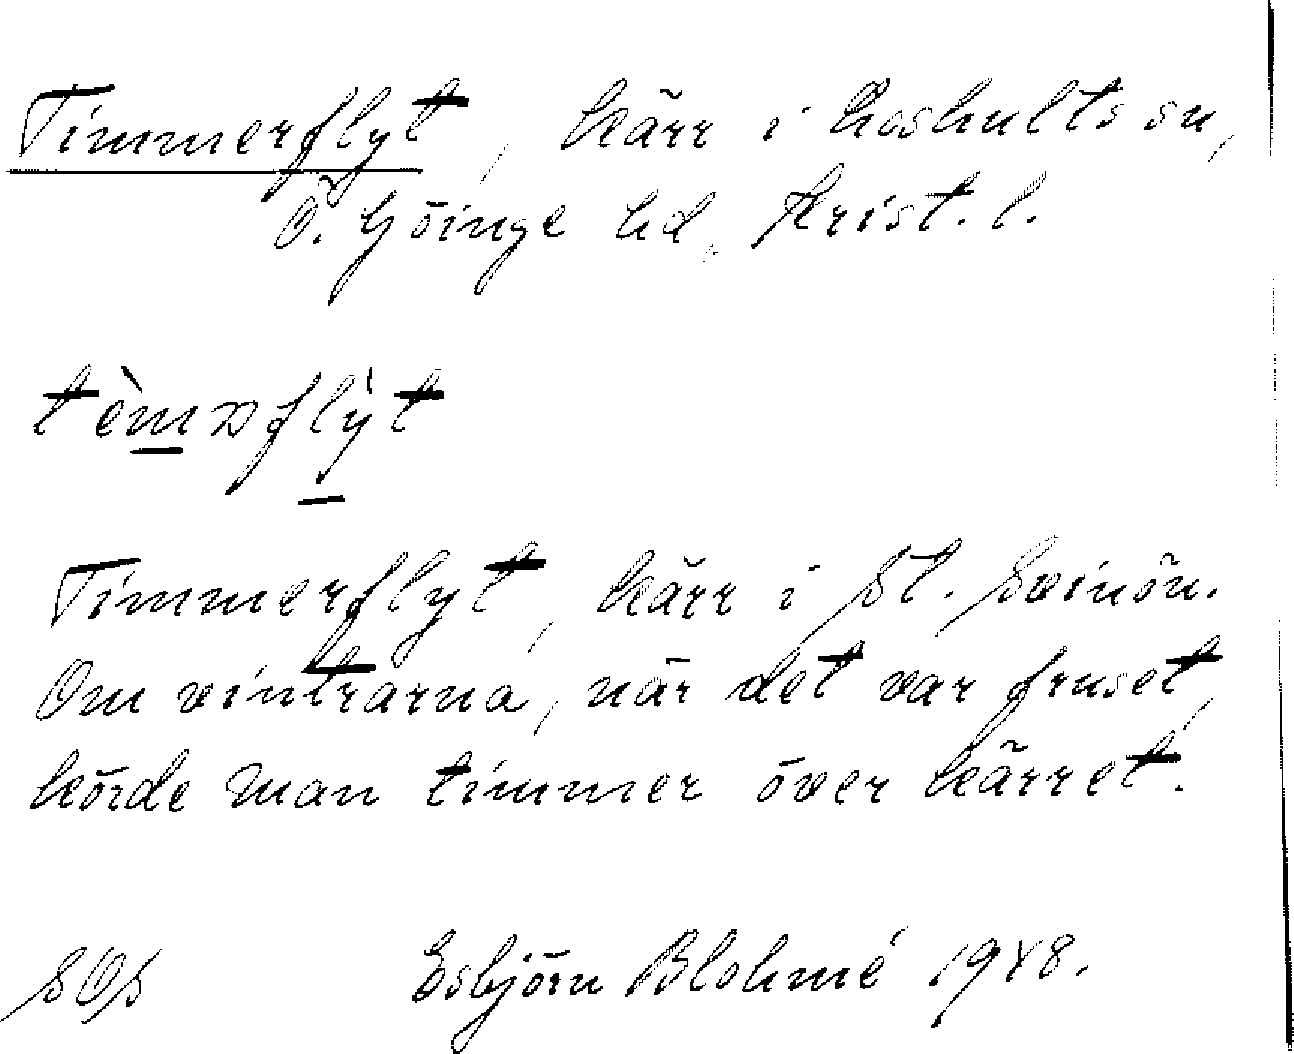 Timmerflyt, kärr i Loshults sn,
Ö. Göinge hd, Krist. l.
tèmɔflỳt
Timmerflyt, kärr i St. Svinön.
Om vintrarna, när det var fruset,
körde man timmer över kärret.
SOS Esbjörn Blohmé 1948.